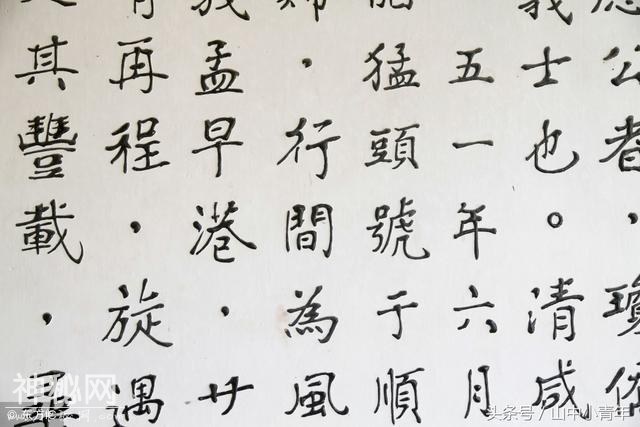 公者，瓊
義士也。清咸
五一年六月
猛頭號于順
，行間為風
孟早港，廿
再程，旋遇
其豐載，
神秘网
头条号／山中小青年